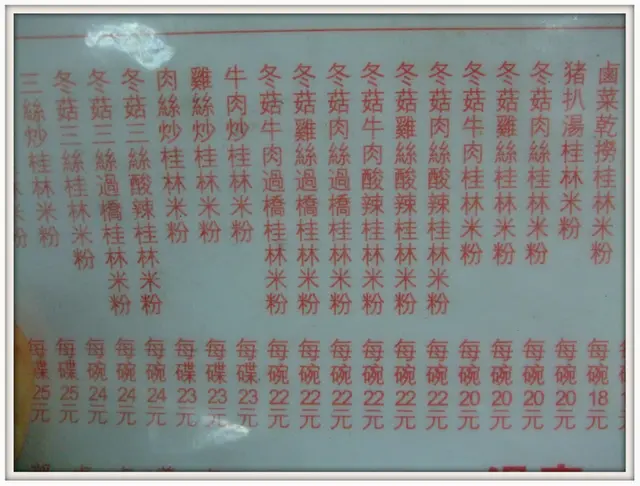 鹵菜乾撈桂林米粉
猪扒湯桂林米粉
冬菇肉絲桂林米粉
冬菇雞絲桂林米粉
冬菇牛肉桂林米粉
冬菇肉絲酸辣桂林米粉
冬菇雞絲酸辣桂林米粉
冬菇牛肉酸辣桂林米粉
冬菇肉絲過橋桂林米粉
冬菇雞絲過橋桂林米粉
冬菇牛肉過橋桂林米粉
牛肉炒桂林米粉
雞絲炒桂林米粉
肉絲炒桂林米粉
冬菇三絲酸辣桂林米粉
冬菇三絲過橋桂林米粉
冬菇三絲桂林米粉
三絲炒桂林米粉
每碗18元
每碗20元
每碗20元
每碗20元
每碗20元
每碗22元
每碗22元
每碗22元
每碗22元
每碗22元
每碗22元
每碟23元
每碟23元
每碟23元
每碗24元
每碗24元
每碗24元
每碟25元
每碟25元